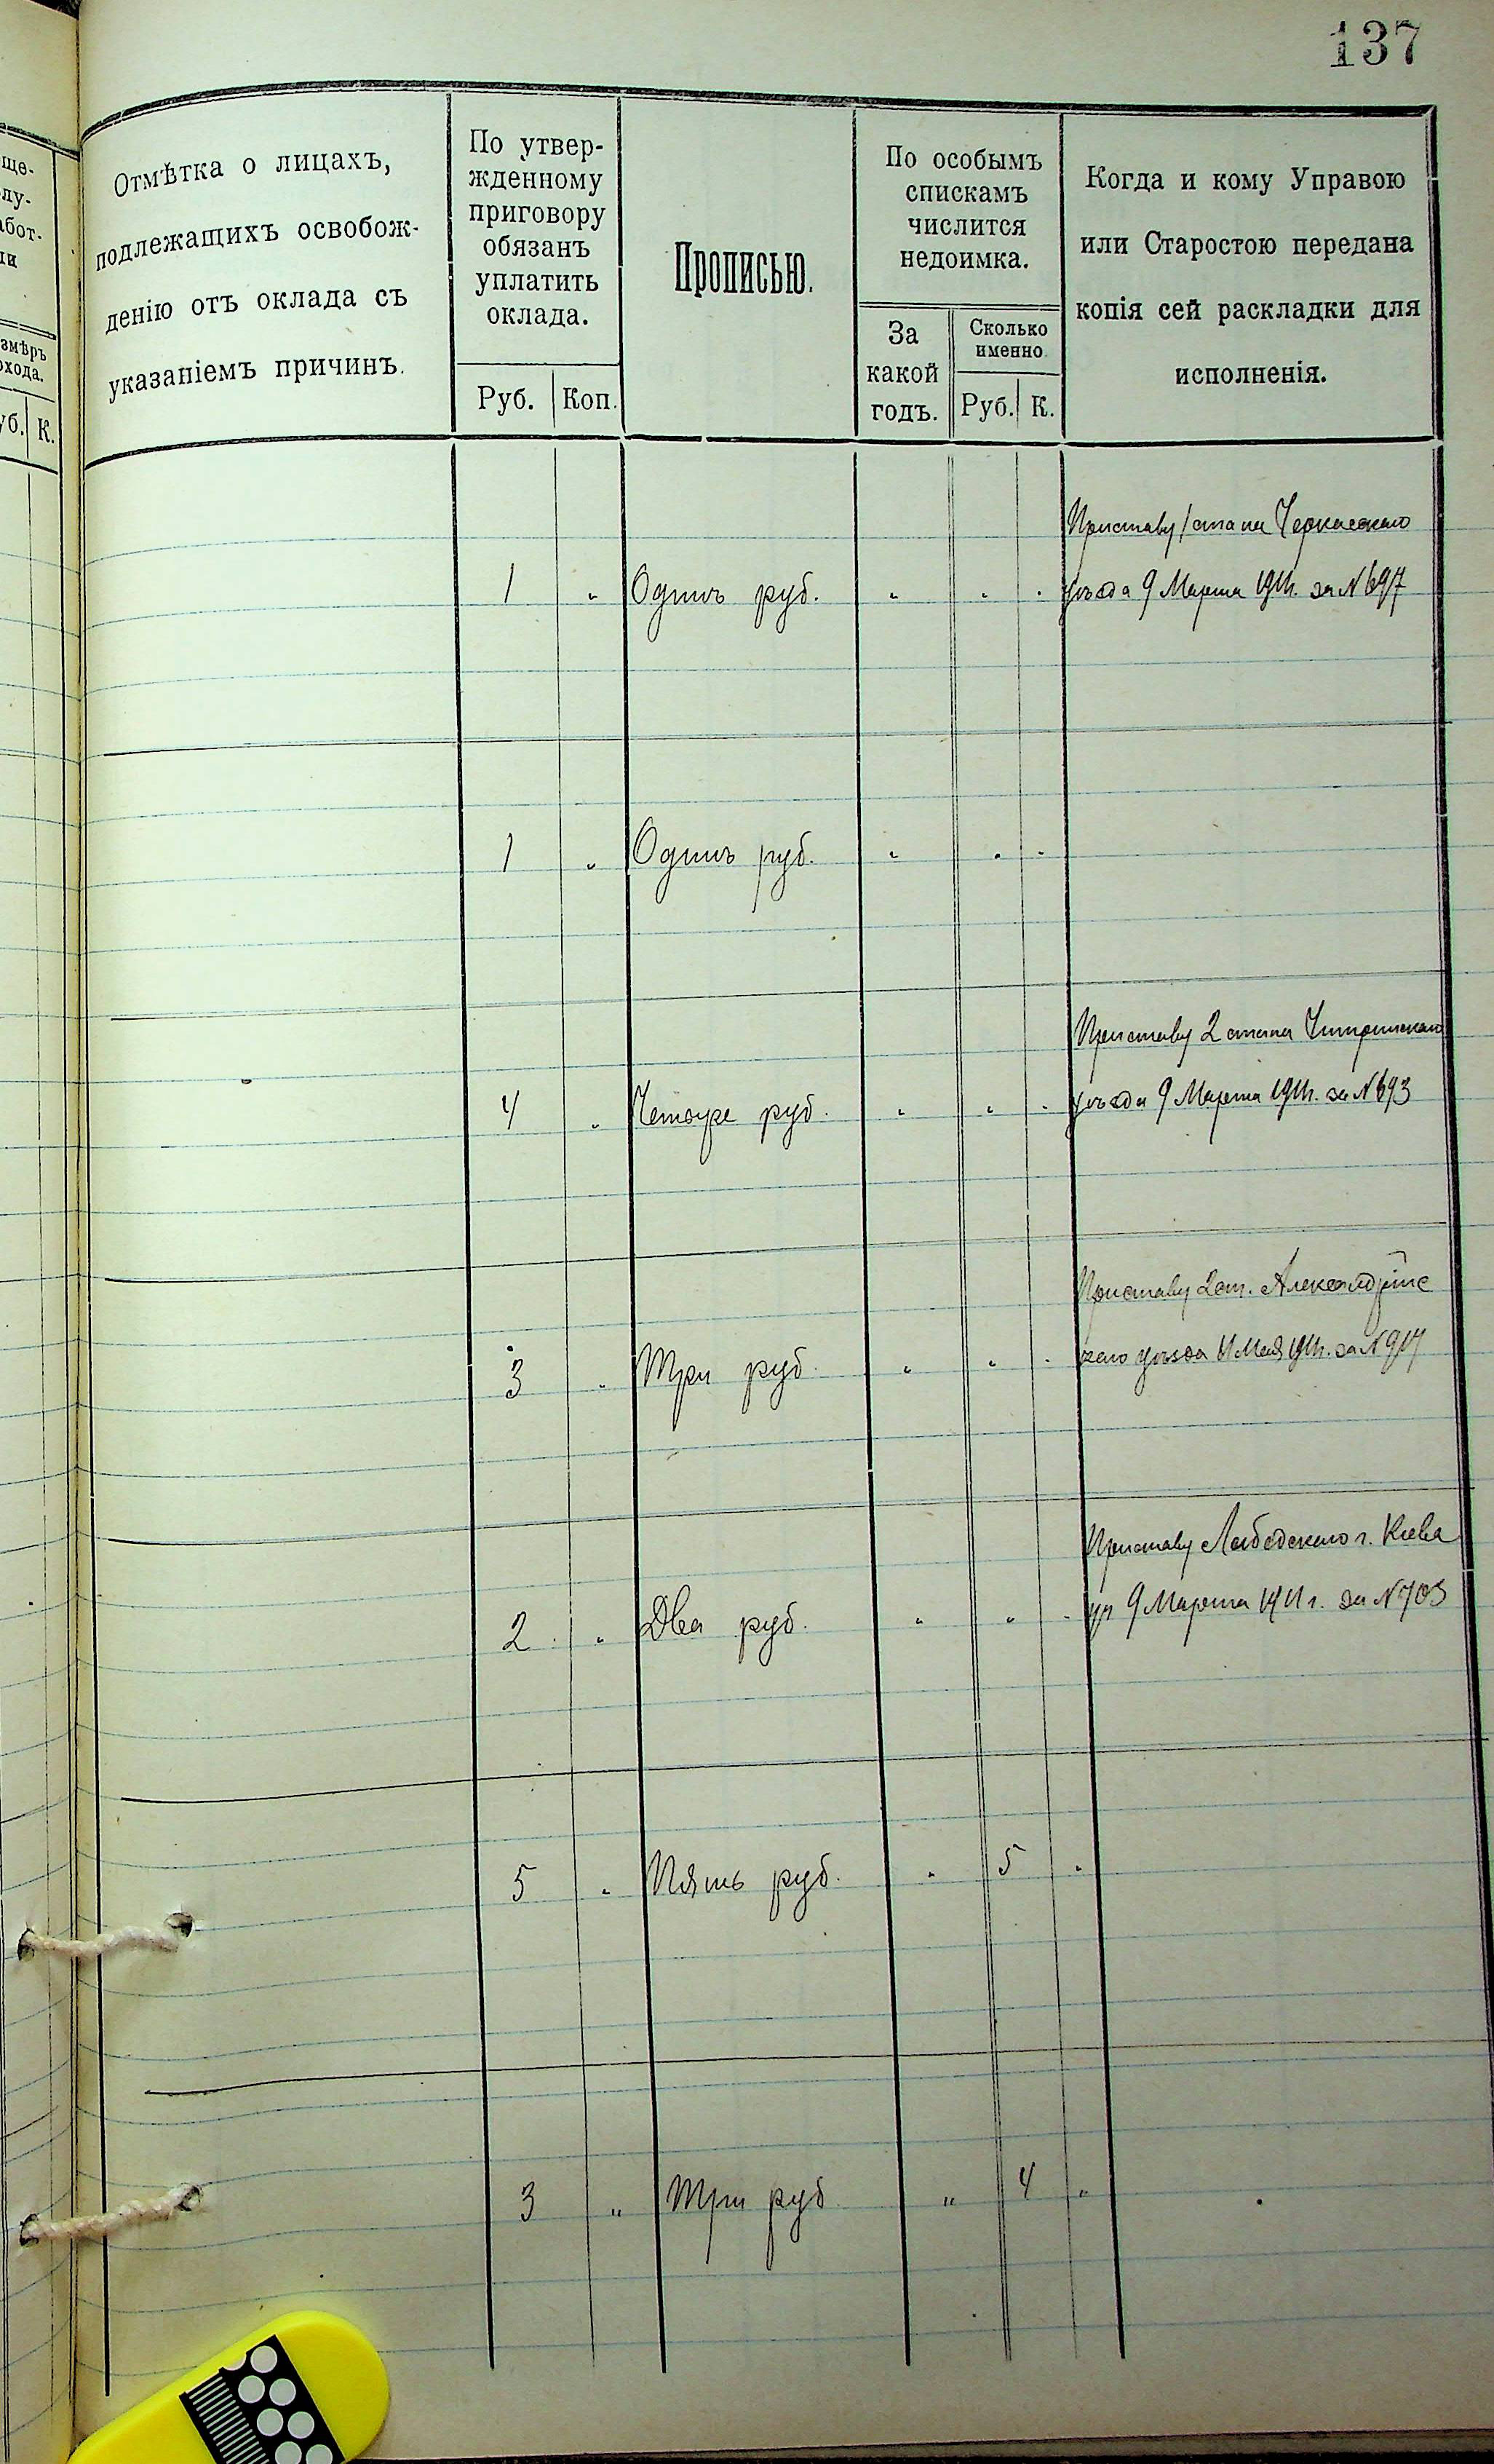 137
ще-
лу-
абот-
ли
змѣръ
охода.
уб. К.
Отмѣтка о лицахъ,
подлежащихъ освобож-
денію отъ оклада съ
указаніемъ причинъ.
По утвер-
жденному
приговору
обязанъ
уплатить
оклада.
Руб. Коп.
Прописью.
По особымъ
спискамъ
числится
недоимка.
За
какой
годъ.
Сколько
именно
Руб. К.
Когда и кому Управою
или Старостою передана
копія сей раскладки для
исполненія.
Приставу 1 стана Черкасскаго
1 " Одинъ руб. " " " уѣзда 9 Марта 1911г. за № 697
1 " Одинъ руб. " " "
Приставу 2 стана Чигиринскаго
4 " Четыре руб. " " " уѣзда 9 Марта 1911г. за № 693
Приставу 2 ст. Александрійс
3 " Три руб. " " " каго уѣзда 11 Мая 1911г. за №
Приставу Лыбедскаго г. Кіева
2 " Два руб. " " " уч 9 Марта 1911 г. за № 703
5 " Пять руб. " 5 "
3 " Три руб " 4 "